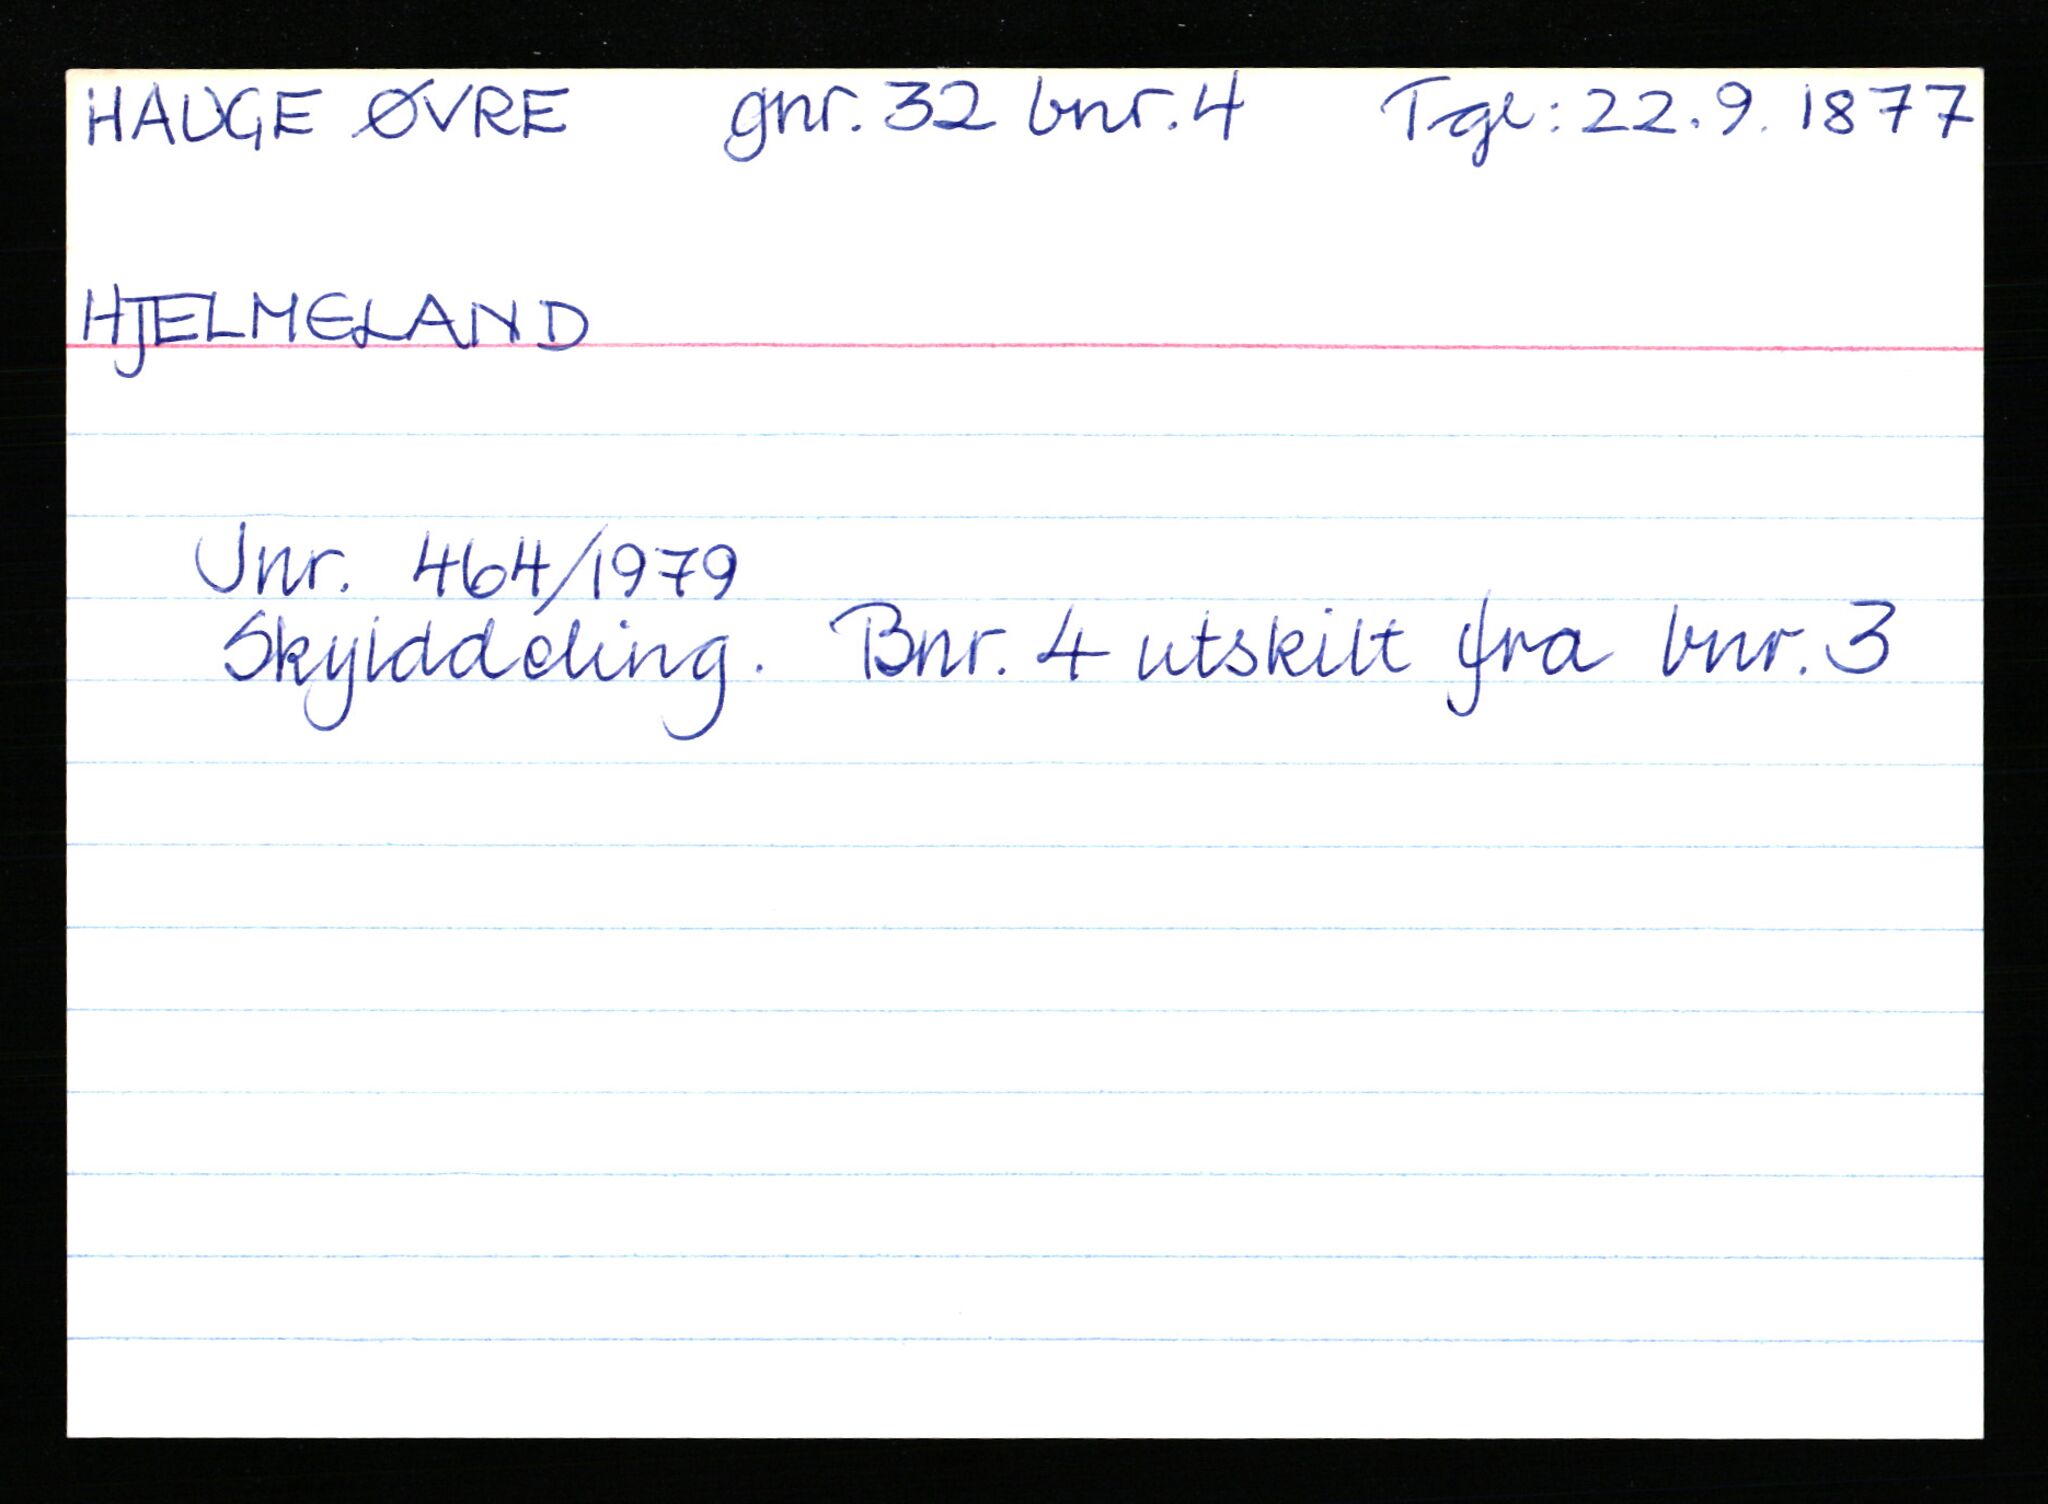 HAUGE ØVRE gnr. 32 bnr. 4 Tgl: 22.9.1877
HJELMELAND
Jnr. 464/1979
Skylddeling. Bnr. 4 utskilt fra bnr. 3